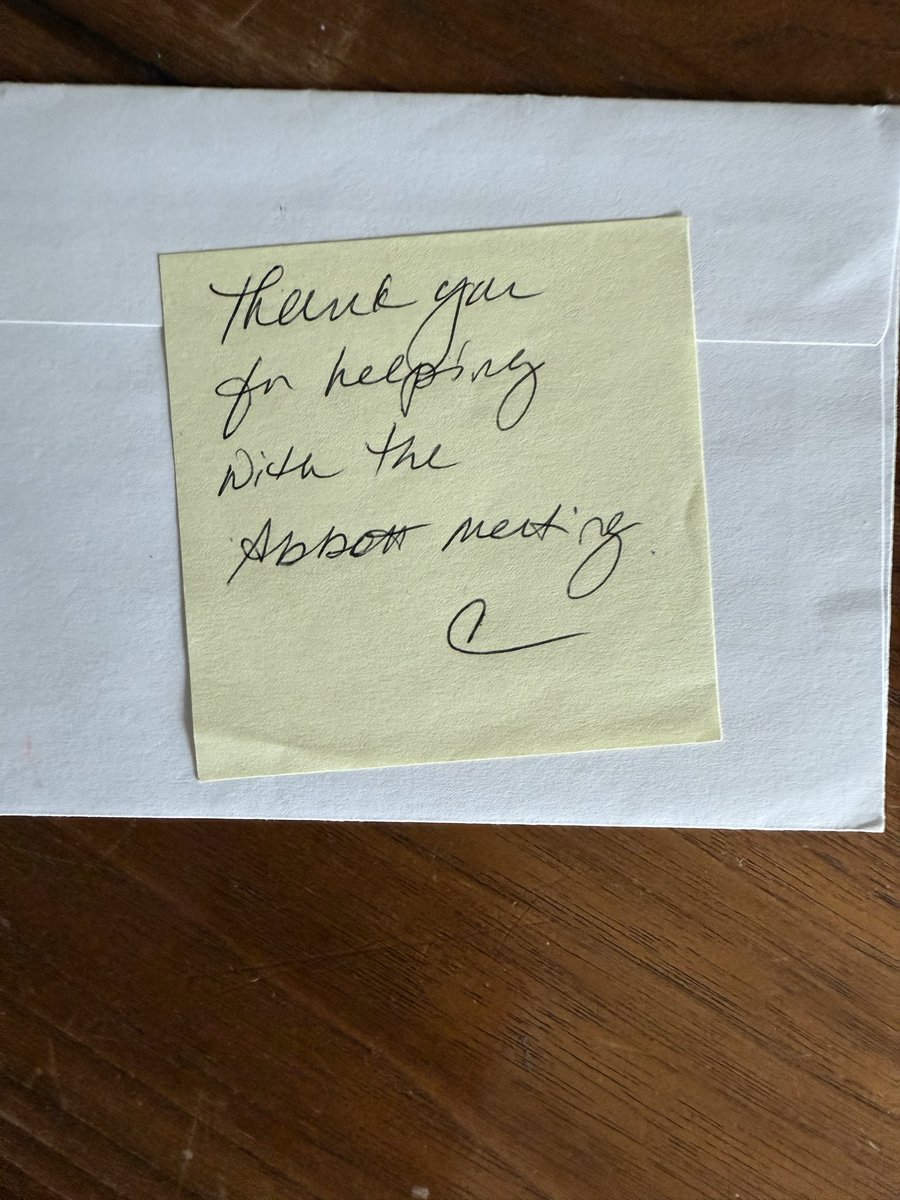 Thank you
for helping
with the
Abbott meeting.
C